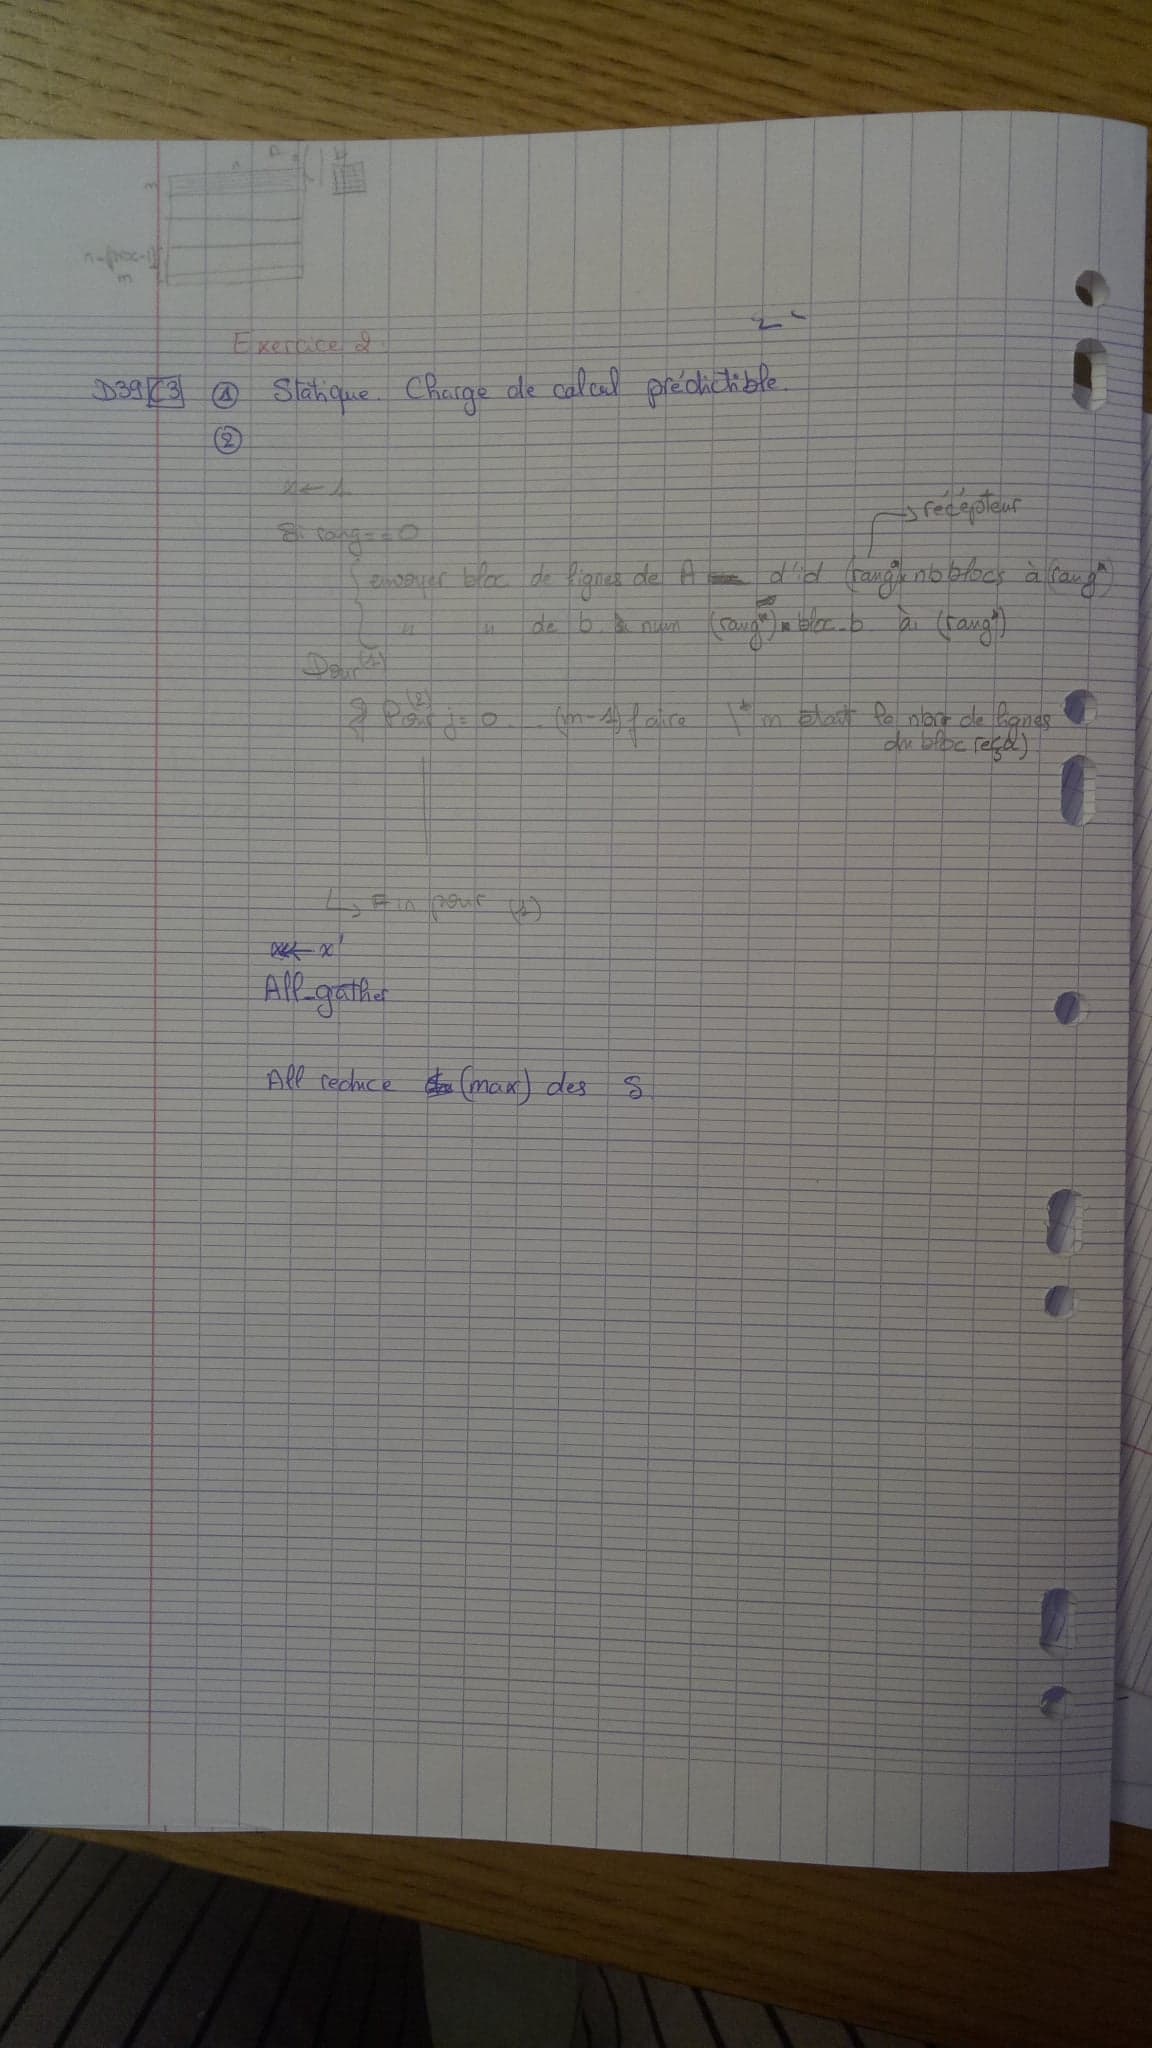 m
n-proc-1
m
Exercice 2
D39 [3] ① Statique. Charge de calcul prédictible.
②
x ← 1
→ récépteur
Si rang == 0
envoyer bloc de lignes de A d'id (rang * nb blocs à (rang
" " de b à num (rang bloc-b à (rang
Pour (1)
Pour (2) j = 0 (m-1) faire \* m étant le nbre de lignes
du bloc reçu)
↳ Fin pour (1)
← x'
All-gather
All reduce (max) des S